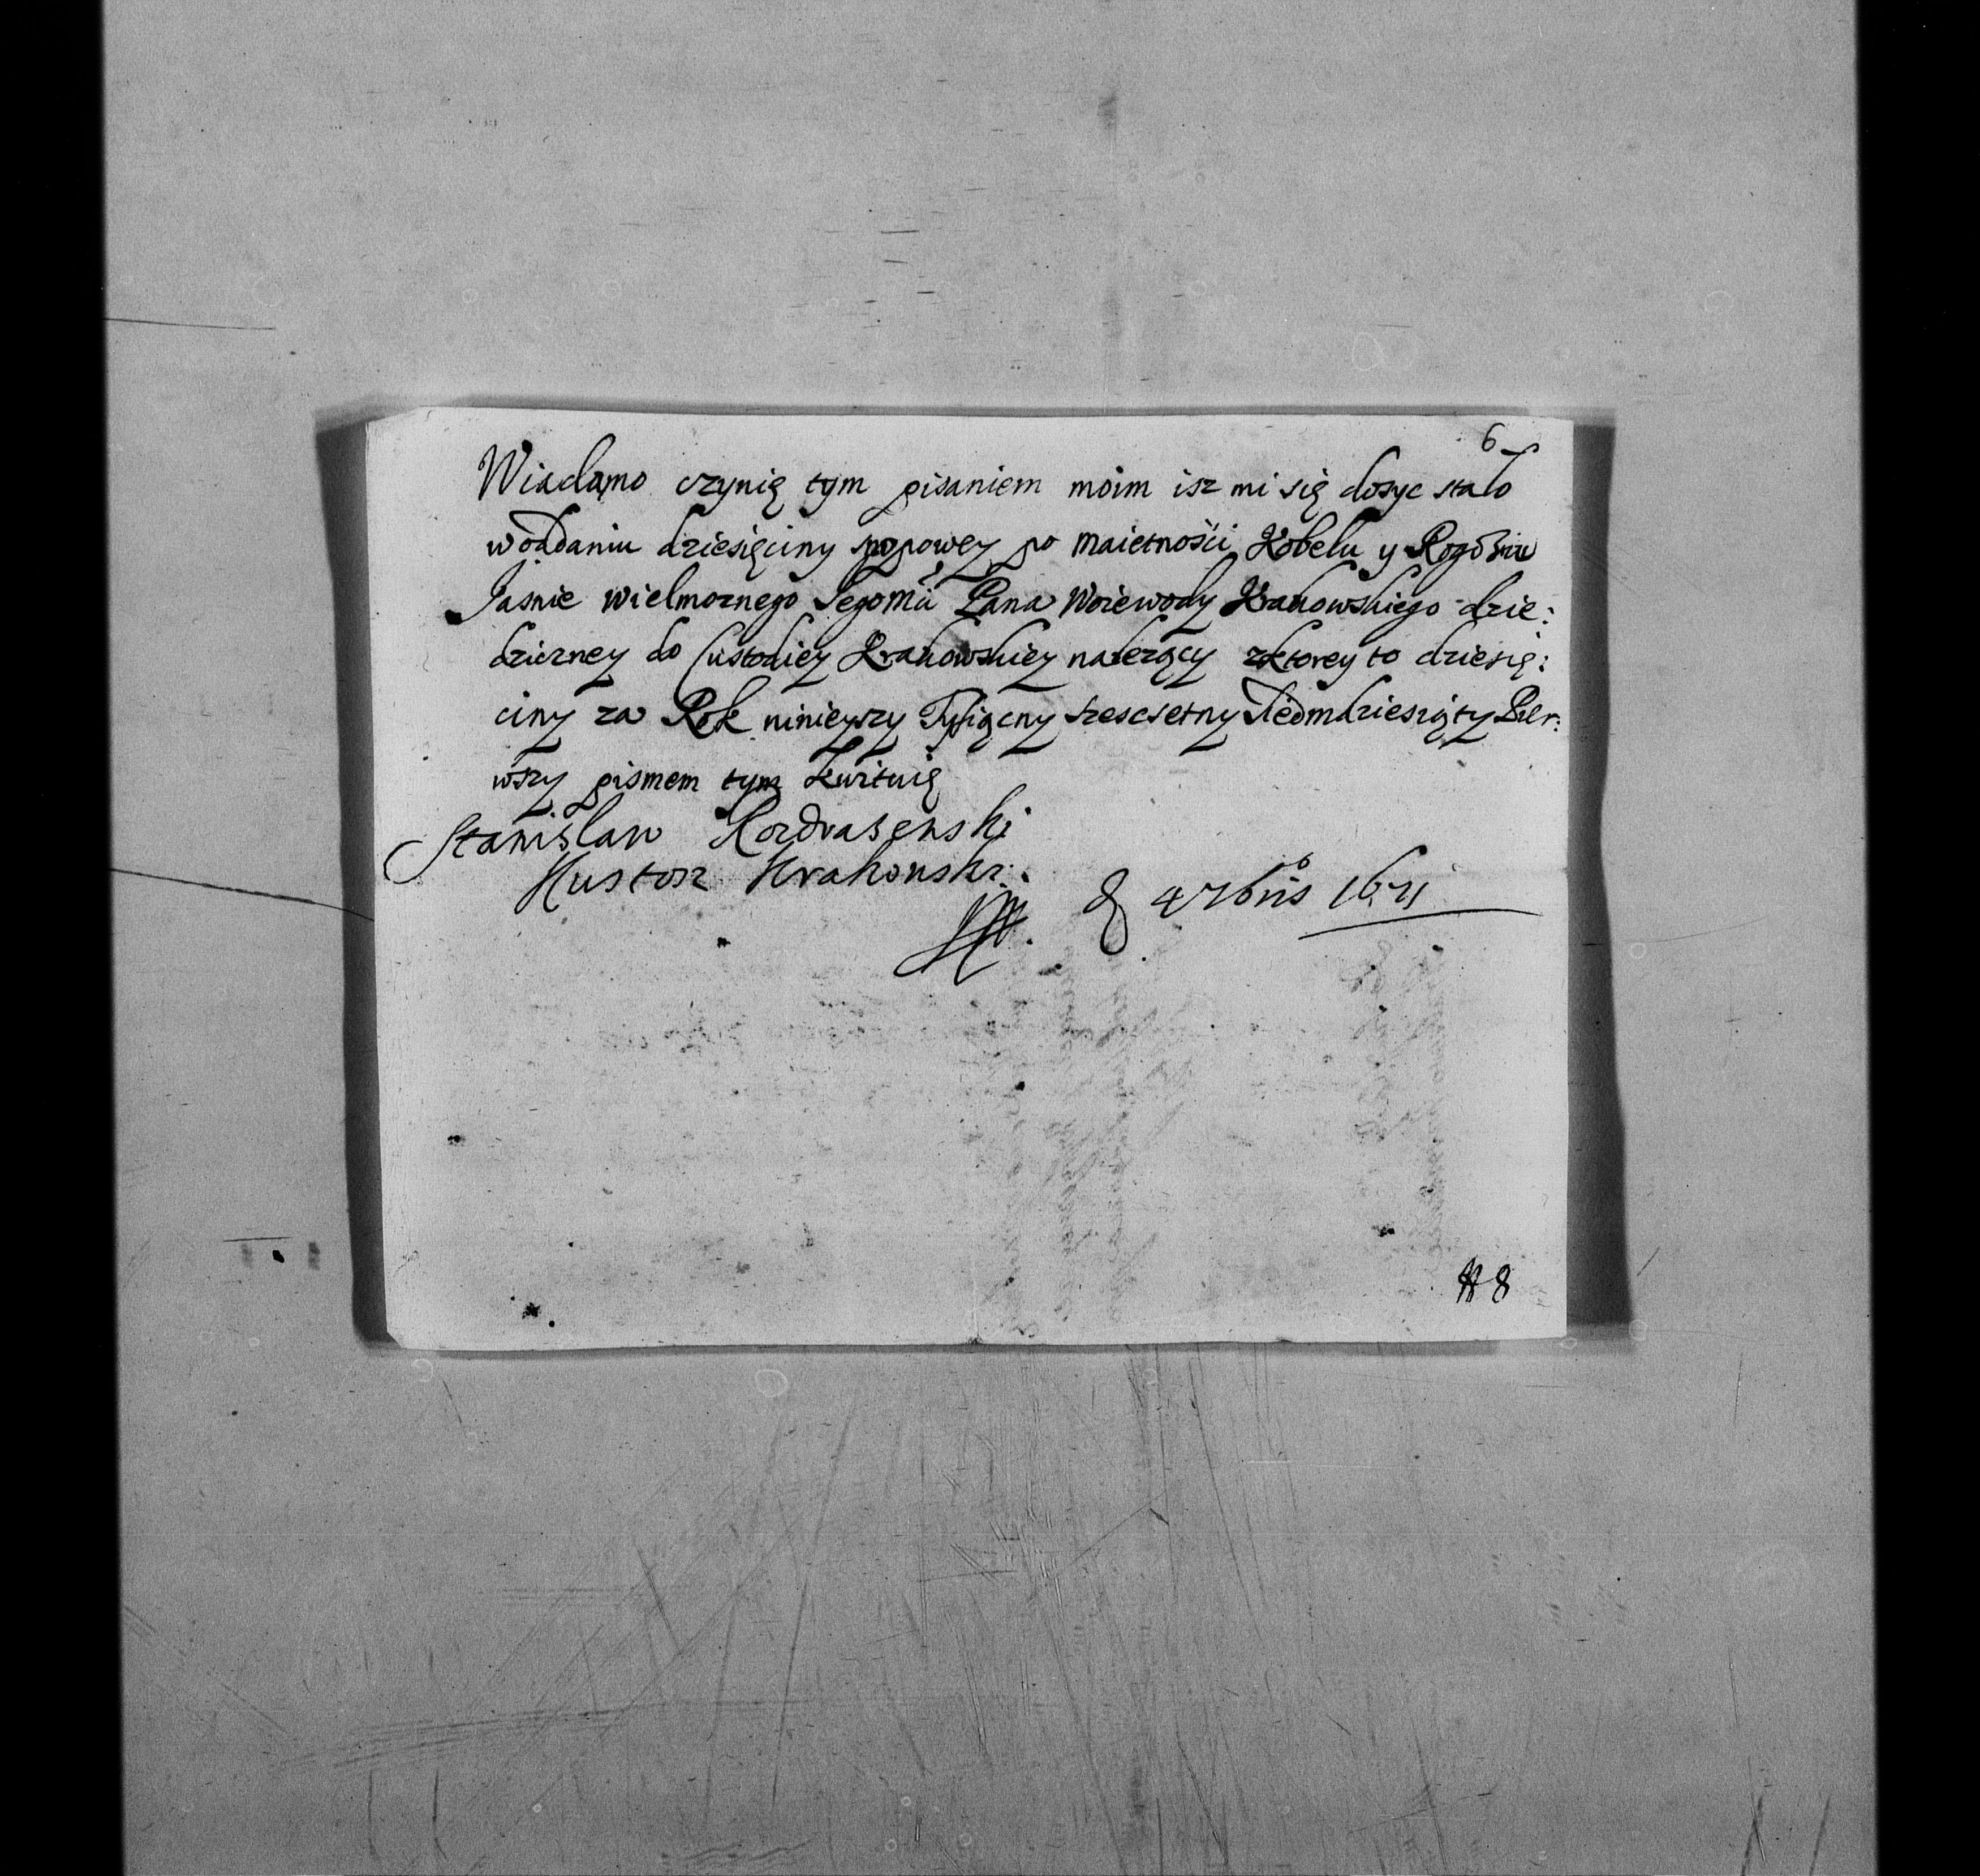 6
Wiadomo czynię tym pisaniem moim isz mi się dosyc stało
w oddaniu dziesięciny snopowey po maietności Kobelu y Rogowie
Jaśnie wielmoznego Jegomci Pana Woiewody Krakowskiego dzie:
dziczney do Custodiey Krakowskiey nalezący zktorey to dziesię:
ciny za Rok ninieyszy Tysiącny szescsetny Siedmdziesiąty Pier:
wszy pismem tym kwituię
Stanislaw
Kustosz Krakowski
1671
8